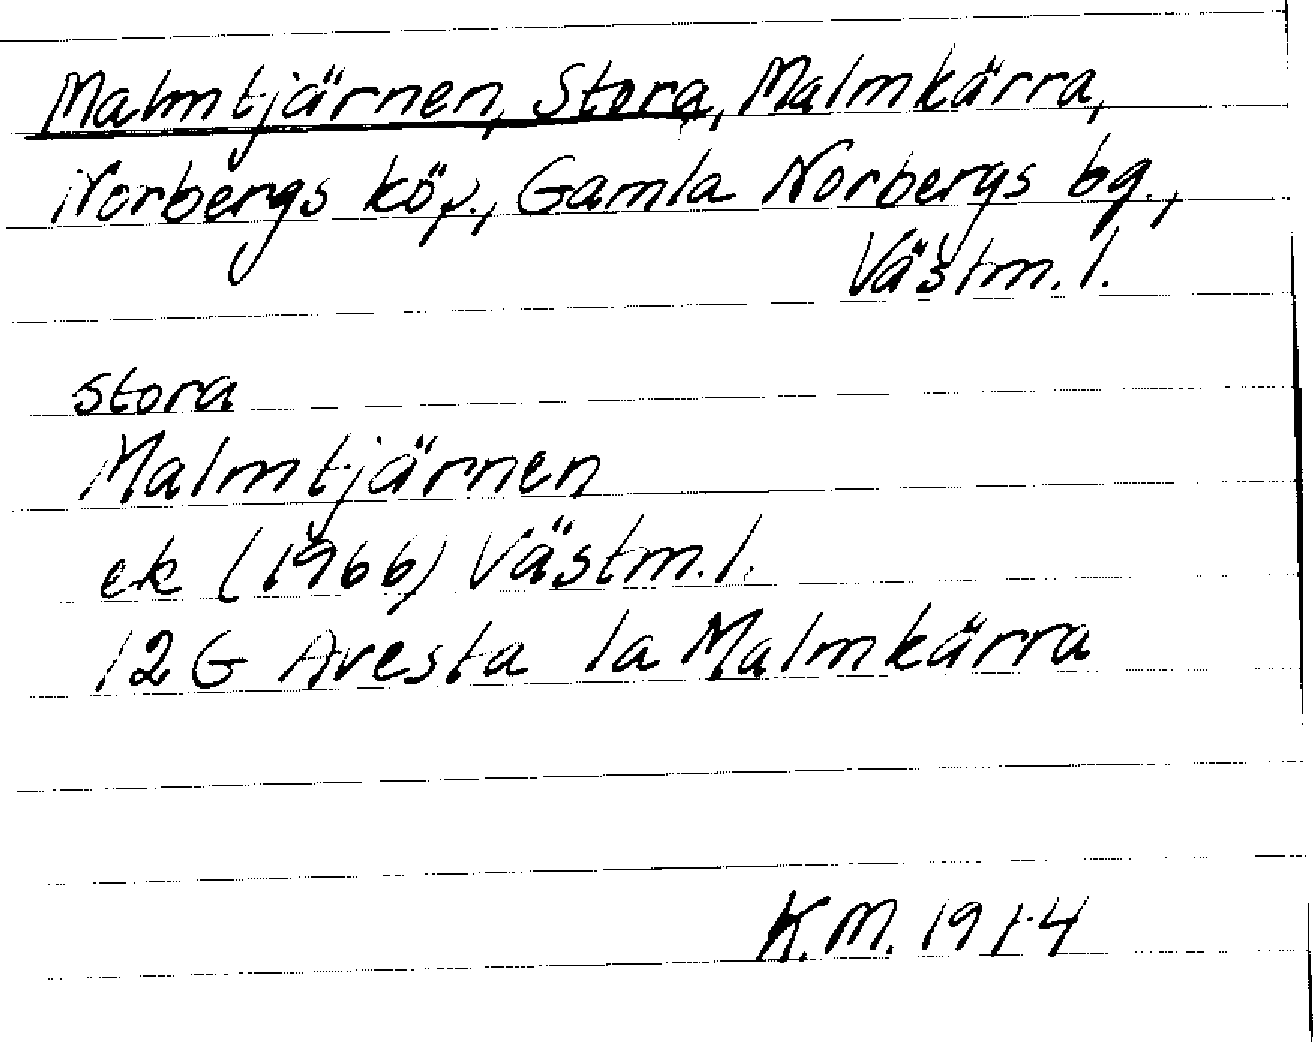 Malmtjärnen, Stora, Malmkärra,
Norbergs köp., Gamla Norbergs bg.,
Västm. l.
stora
Malmtjärnen
ek (1966) Västm. l.
12G Avesta 1a Malmkärra
K.M. 1974